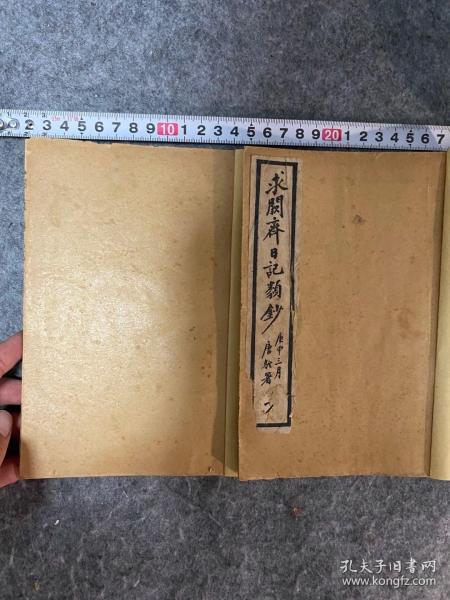 2 3 4 5 6 7 8 9 10 1 2 3 4 5 6 7 8 9 20 1 2 3 4 5 6 7
求闕齋日記類鈔
庚申三月
唐駝署
孔夫子旧书网
www.kongfz.com